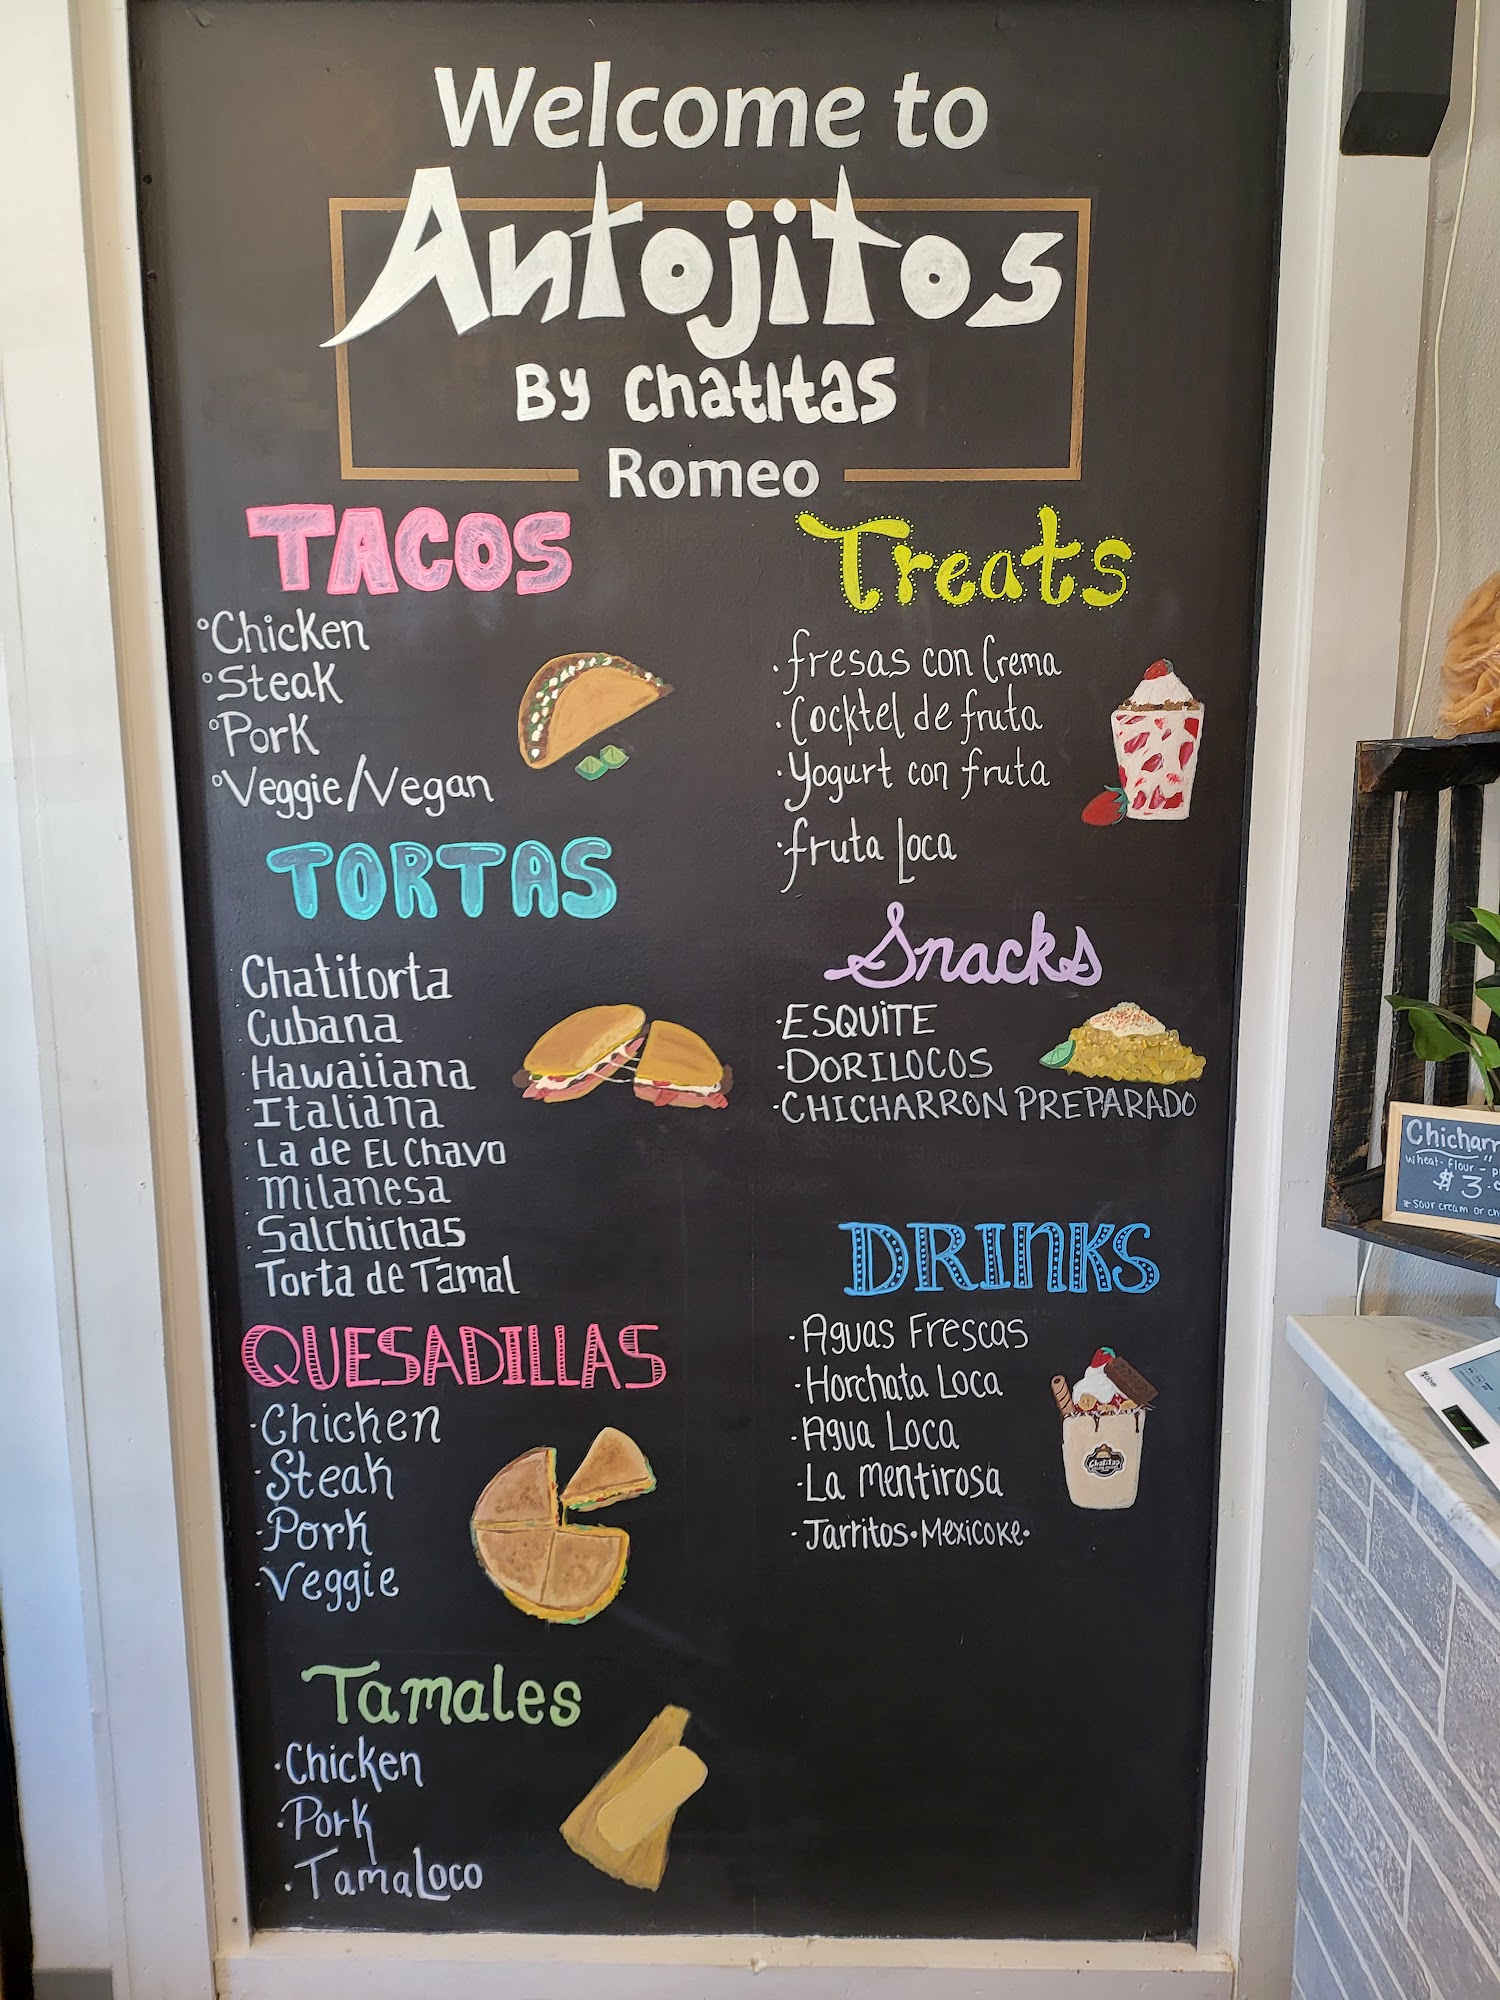 Welcome to
Antojitos
By Chatitas
Romeo
TACOS
°Chicken
°Steak
°Pork
°Veggie/Vegan
TORTAS
·Chatitorta
·Cubana
·Hawaiiana
·Italiana
·La de El Chavo
·Milanesa
·Salchichas
·Torta de Tamal
QUESADILLAS
·Chicken
·Steak
·Pork
·Veggie
Tamales
·Chicken
·Pork
·TamaLoco
Treats
·fresas con Crema
·Cocktel de fruta
·Yogurt con fruta
·fruta Loca
Snacks
·ESQUiTE
·DORILOCOS
·CHICHARRON PREPARADO
DRINKS
·Aguas Frescas
·Horchata Loca
·Agua Loca
·La Mentirosa
·Jarritos·Mexicoke·
Chatitas
Chicharr
wheat-flour-
$3.
*sour cream or ch